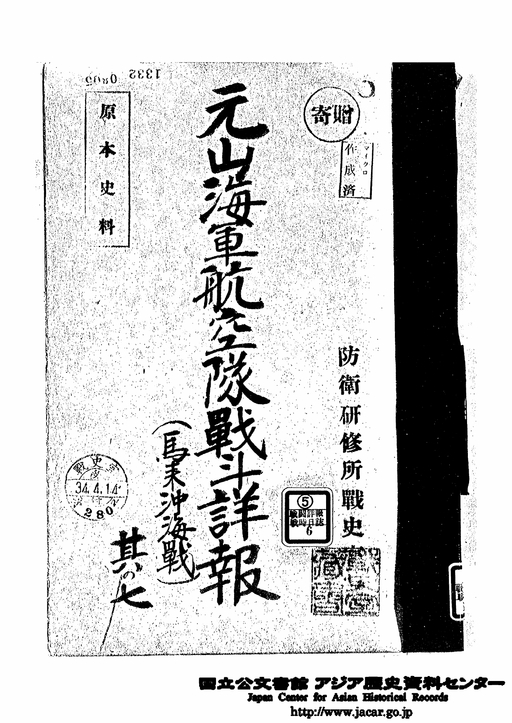 1332
0805
寄贈
マイクロ
作成済
原本史料
元山海軍航空隊戦斗詳報
(馬来沖海戦)
其の七
防衛研修所戦史室
34.4.14
280
⑤
戦闘詳報
戦時日誌
6
国立公文書館 アジア歴史資料センター
Japan Center for Asian Historical Records
http://www.jacar.go.jp